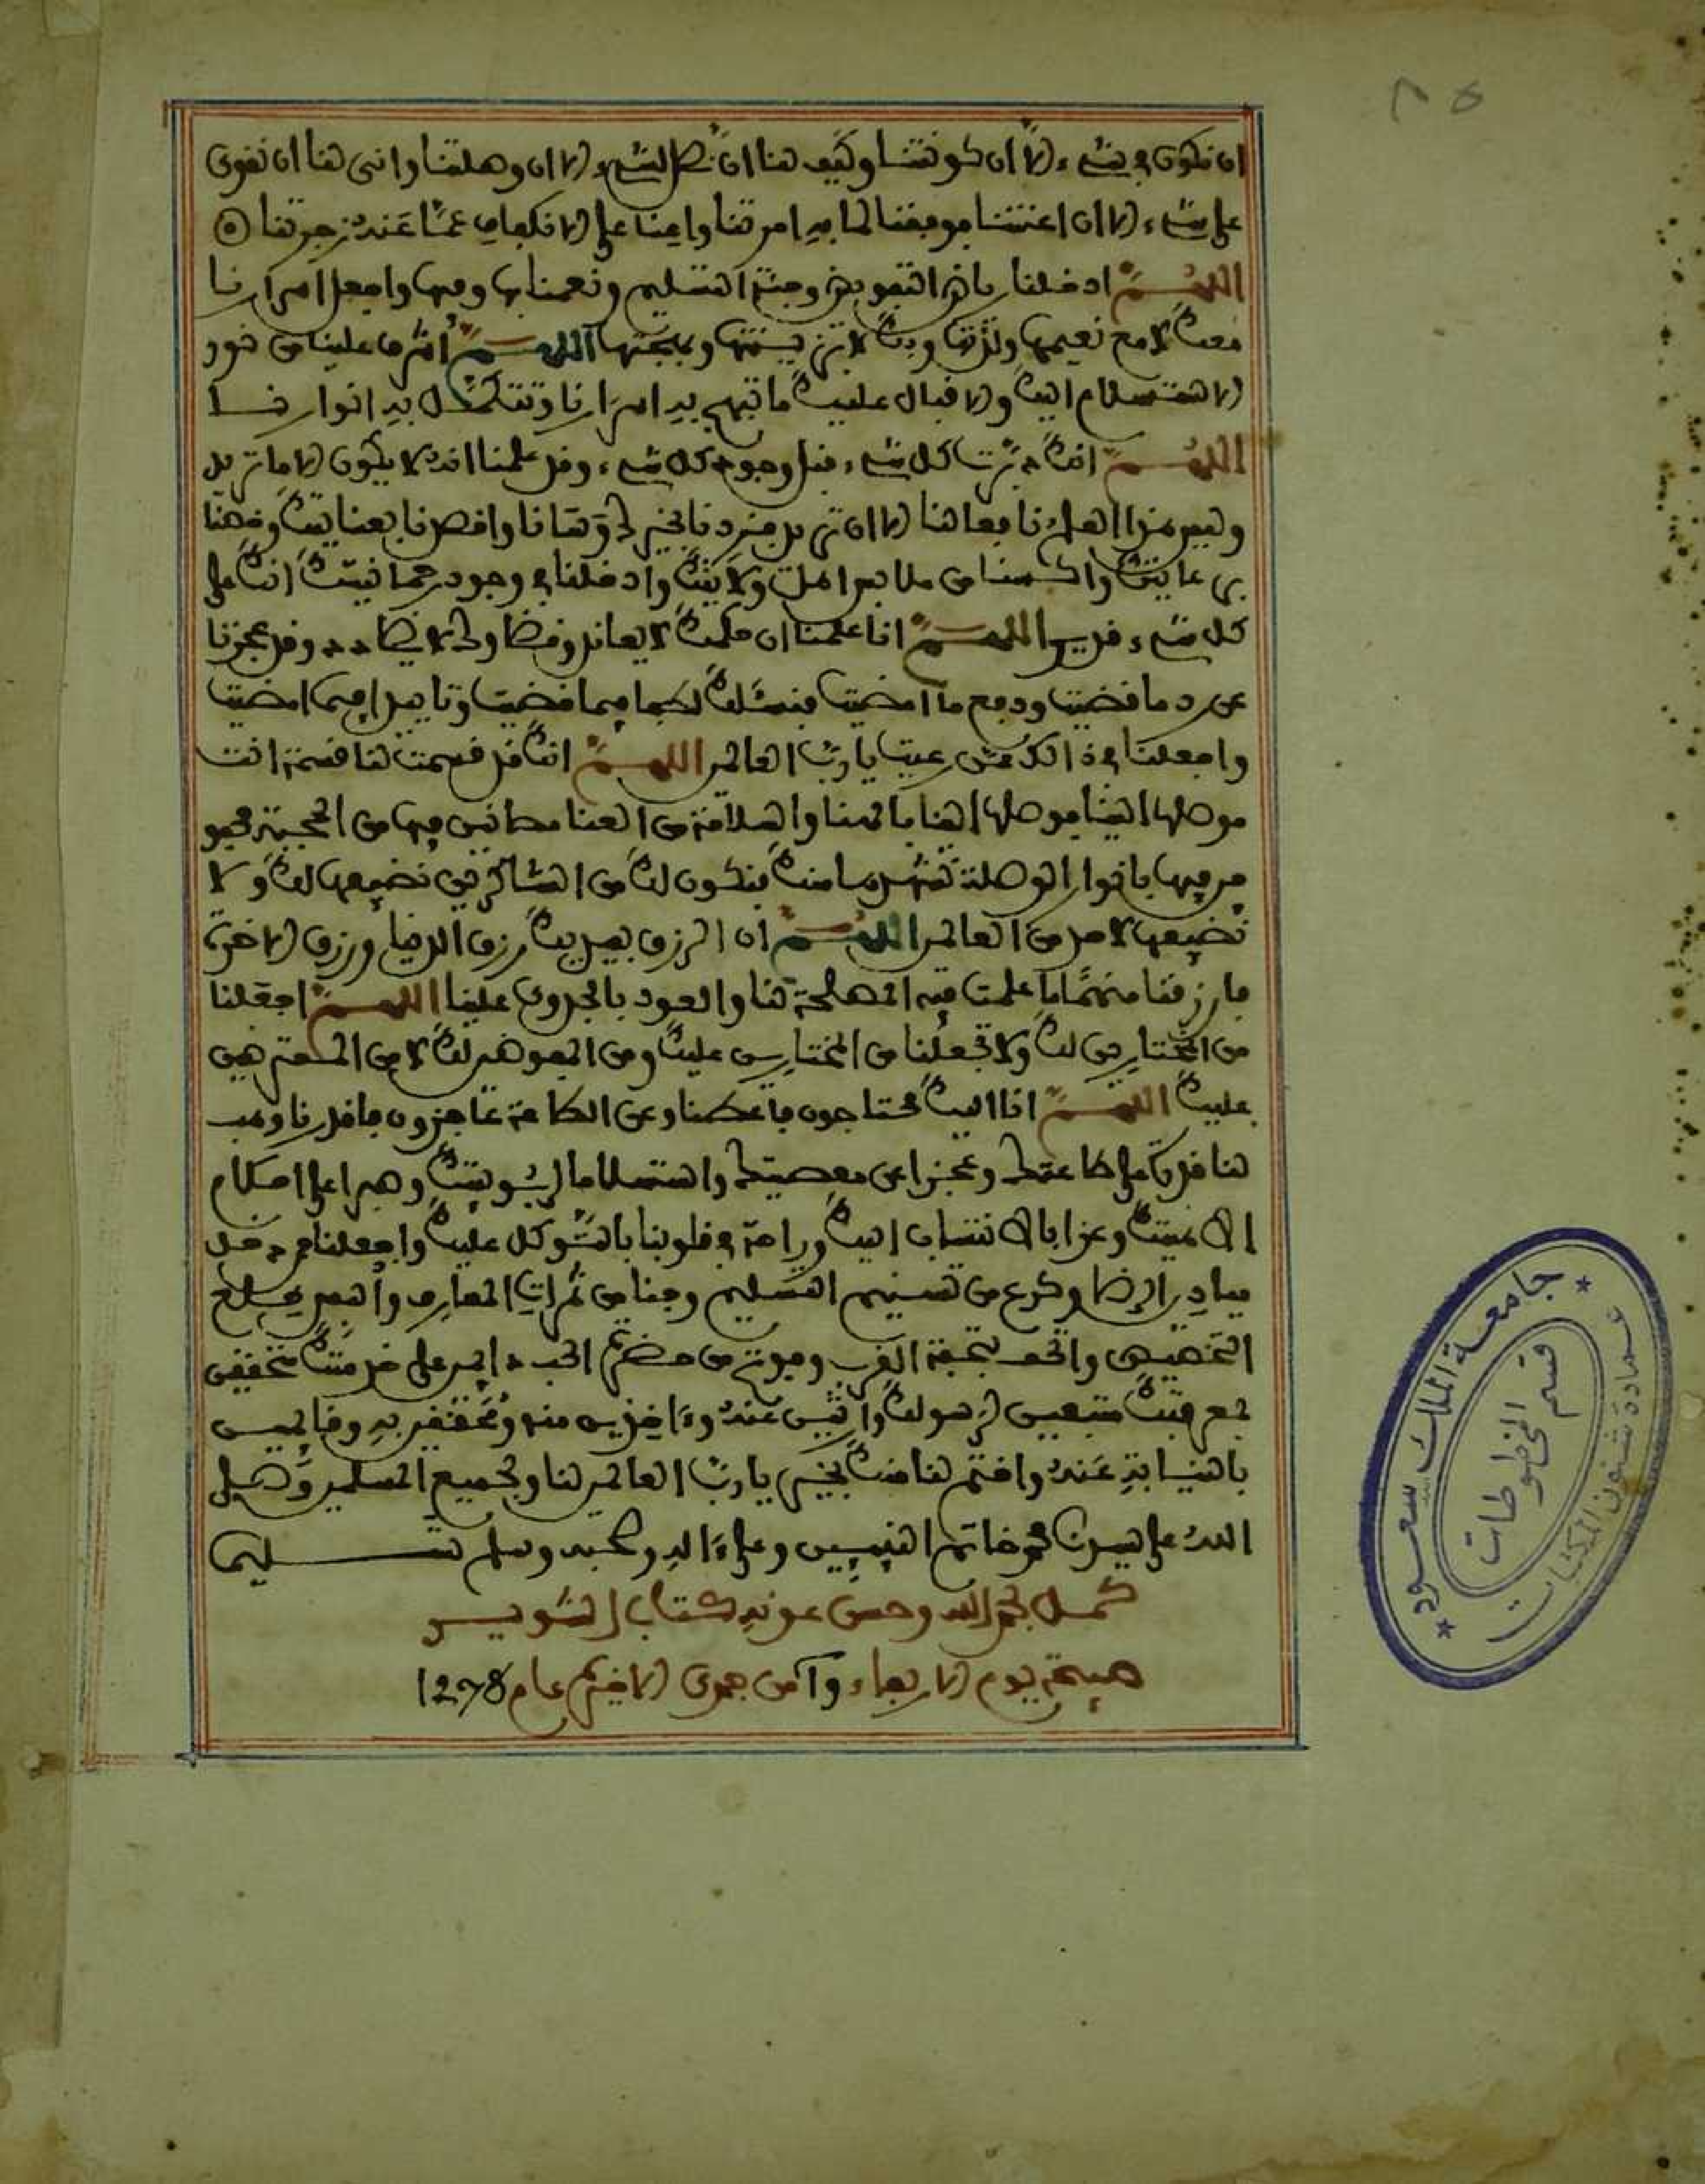 ان نكون في شيء الا ان كونتنا وكيف لنا ان نصل لشيء الا ان وصلتنا وانى لنا ان نقوى
على شيء الا ان اعنتنا فوفقنا لما به امرتنا واعنا على الانكفاف عما عنه زجرتنا
اللهم ادخلنا رياض التفويض وجنة التسليم ونعمنا بها وفيها واجعل اسرارنا
معك لا مع نعيمها ولذتها وبك لا بزينتها وبهجتها اللهم اشرق علينا من نور
الاستسلام اليك والاقبال عليك ما تبهج به اسرارنا وتتكمل به انوارنا
اللهم انك دبرت كل شيء قبل وجود كل شيء وقد علمنا انه لا يكون الا ما تريد
وليس هذا العلم نافعا لنا الا ان تريد فردنا بخيرك وتقانا واقصدنا بعنايتك وحفنا
برعايتك واكسنا من ملابس اهل ولايتك وادخلنا في وجود حمايتك انك على
كل شيء قدير اللهم انا علمنا ان حكمك لا يعاند وقضاوك لا يضادد وقد عجزنا
عن رد ما قضيت ودفع ما امضيت فنسئلك لطفا فيما قضيت وتاييدا فيما امضيت
واجعلنا في ذالك ممن رعيت يا رب العالمين اللهم انك قد قسمت لنا قسمة انت
موصلها الينا فوصلها الينا بالهنا والسلامة من العنا مصانين فيها من الحجبة محفو
فين فيها بانوار الوصلة نشهدها منك فنكون لك من الشاكرين نضيفها لك ولا
نضيفها لاحد من العالمين اللهم ان الرزق بيدك رزق الدنيا ورزق الاخرة
فارزقنا منهما ما علمت فيه المصلحة لنا والعود بالجدوى علينا اللهم اجعلنا
من المختارين لك ولا تجعلنا من المختارين عليك ومن المفوضين لك لا من المعترضين
عليك اللهم انا اليك محتاجون فاعطنا وعن الطاعة عاجزون فاقدرنا وهب
لنا قدرة على طاعتك وعجزا عن معصيتك واستسلاما لربوبيتك وصبرا على احكام
الاهيتك وعزا بالانتساب اليك وراحة في قلوبنا بالتوكل عليك واجعلنا ممن دخل
ميادين الرضا وكرع من تسنيم التسليم وجنا من ثمرات المعارف والبس خلع
التخصيص واتحف بتحفة القرب وفوتح من حضرة الحب دائمين على خدمتك محققين
لمعرفتك متبعين لرسولك وارثين عنه وءاخذين منه ومحققين به وقايمين
بالنيابة عنه واختم لنا منك بخير يا رب العالمين لنا ولجميع المسلمين وصلى
الله على سيدنا محمد خاتم النبيين وعلى ءاله وصحبه وسلم تسليما
كمل بحمد الله وحسن عونه كتاب التنوير
صبيحة يوم الاربعاء وآ من جمدى الاخيرة عام 1278
جامعة الملك سعود
عمادة شئون المكتبات
قسم المخطوطات